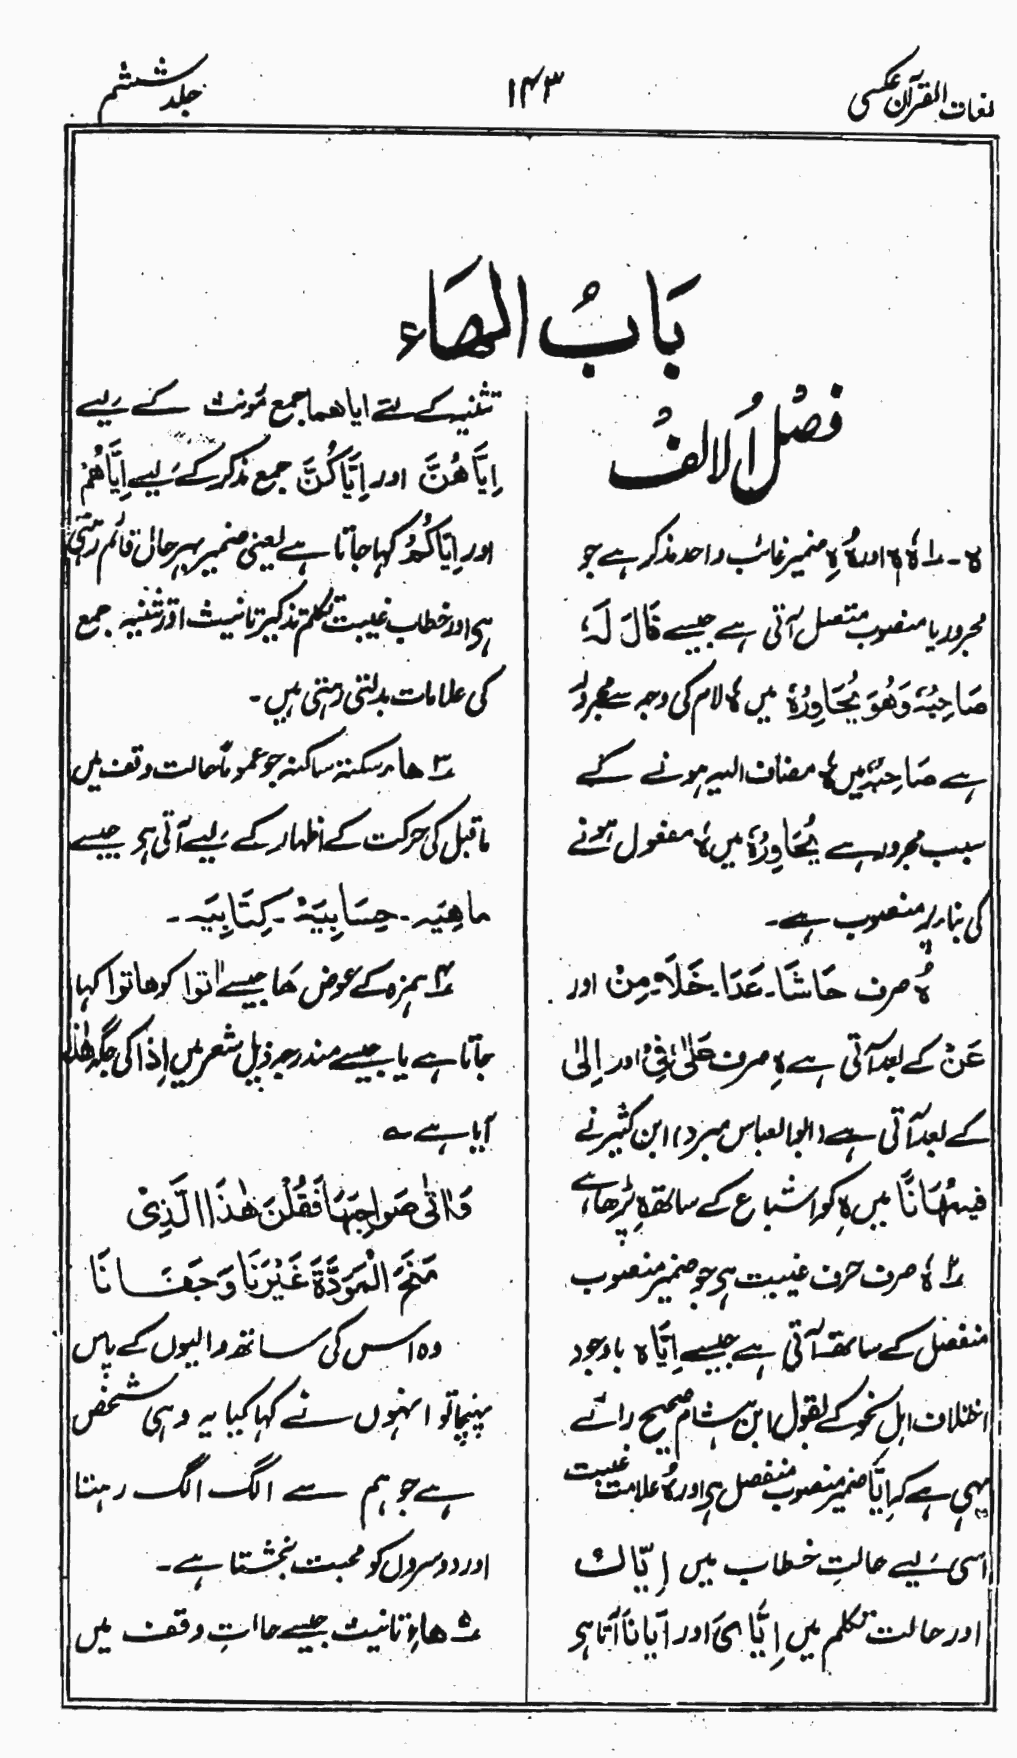 لغات القرآن عکسی
۱۴۳
جلد ششم
بَابُ الهَاء
فصْلُ الْالفُ
ہ۔ ۱ـ ہٗ ہٗ اور ہٗ ہِ ضمیر غائب واحد مذکر ہے جو
مجرور یا منصوب متصل آتی ہے جیسے قَالَ لَہٗ
صَاحِبُہٗ وَھُوَ یُحَاوِرُہٗ میں ہٗ لام کی وجہ سے مجرور
ہے صَاحِبُہٗ میں ہٗ مضاف الیہ ہونے کے
سبب مجرور ہے یُحَاوِرُہٗ میں ہٗ مفعول ہونے
کی بنا پر منصوب ہے۔
ہُ صرف حَاشَا۔ عَدَا۔ خَلَا۔ مِنْ اور
عَنْ کے بعد آتی ہے ہِ صرف عَلیٰ، فِیْ اور اِلیٰ
کے بعد آتی ہے (ابو العباس مبرد) ابن کثیر نے
فیہٖ مُھَانًا میں ہِ کو اشباع کے ساتھ ہٖ پڑھا ہے
۲ـ ہٗ صرف حرف غیبت ہی جو ضمیر منصوب
منفصل کے ساتھ آتی ہے جیسے اِیَّاہ باوجود
اختلاف اہل نحو کے بقول ابن ہشام صحیح رائے
یہی ہے کہ اِیَّا ضمیر منصوب منفصل ہی اور ہُ علامت غیبت
اسی لیے حالتِ خطاب میں اِیّاك
اور حالت تکلم میں اِیَّا یَ اور اَیَّانَا آتا ہی
تثنیہ کے لئے ایاھما جمع مؤنث کے لیے
اِیَّا ھُنَّ اور اِیَّاکُنَّ جمع مذکر کے لیے اِیَّاھُمْ
اور اِیَّاکُمُْ کہا جاتا ہے یعنی ضمیر بہرحال قائم رہتی
ہی اور خطاب غیبت تکلم تذکیر تانیث اور تثنیہ جمع
کی علامات بدلتی رہتی ہیں۔
۳ـ ھاء سکتہ ساکنہ جو عموماً حالت وقف میں
ماقبل کی حرکت کے اظہار کے لیے آتی ہی جیسے
ماھِیَہ۔ حِسَابِیَہْ۔ کِتَابِیَہ۔
۴ـ ہمزہ کے عوض ھَا جیسے اانوا کو ھاتوا کہا
جاتا ہے یا جیسے مندرجہ ذیل شعر میں اِذَا کی جگہ ھٰذا
آیا ہے ؎
وَاَتٰی صَواحِبَہَا فَقُلْنَ ھٰذَا الَّذِیْ
مَنَحَ الْمَوَدَّۃَ غَیْرَنَا وَجَفَانَا
وہ اس کی ساتھ والیوں کے پاس
پہنچا تو انہوں نے کہا کیا یہ وہی شخص
ہے جو ہم سے الگ الگ رہتا
اور دوسروں کو محبت بخشتا ہے۔
۵ـ ھاءِ تانیث جیسے حالتِ وقف میں